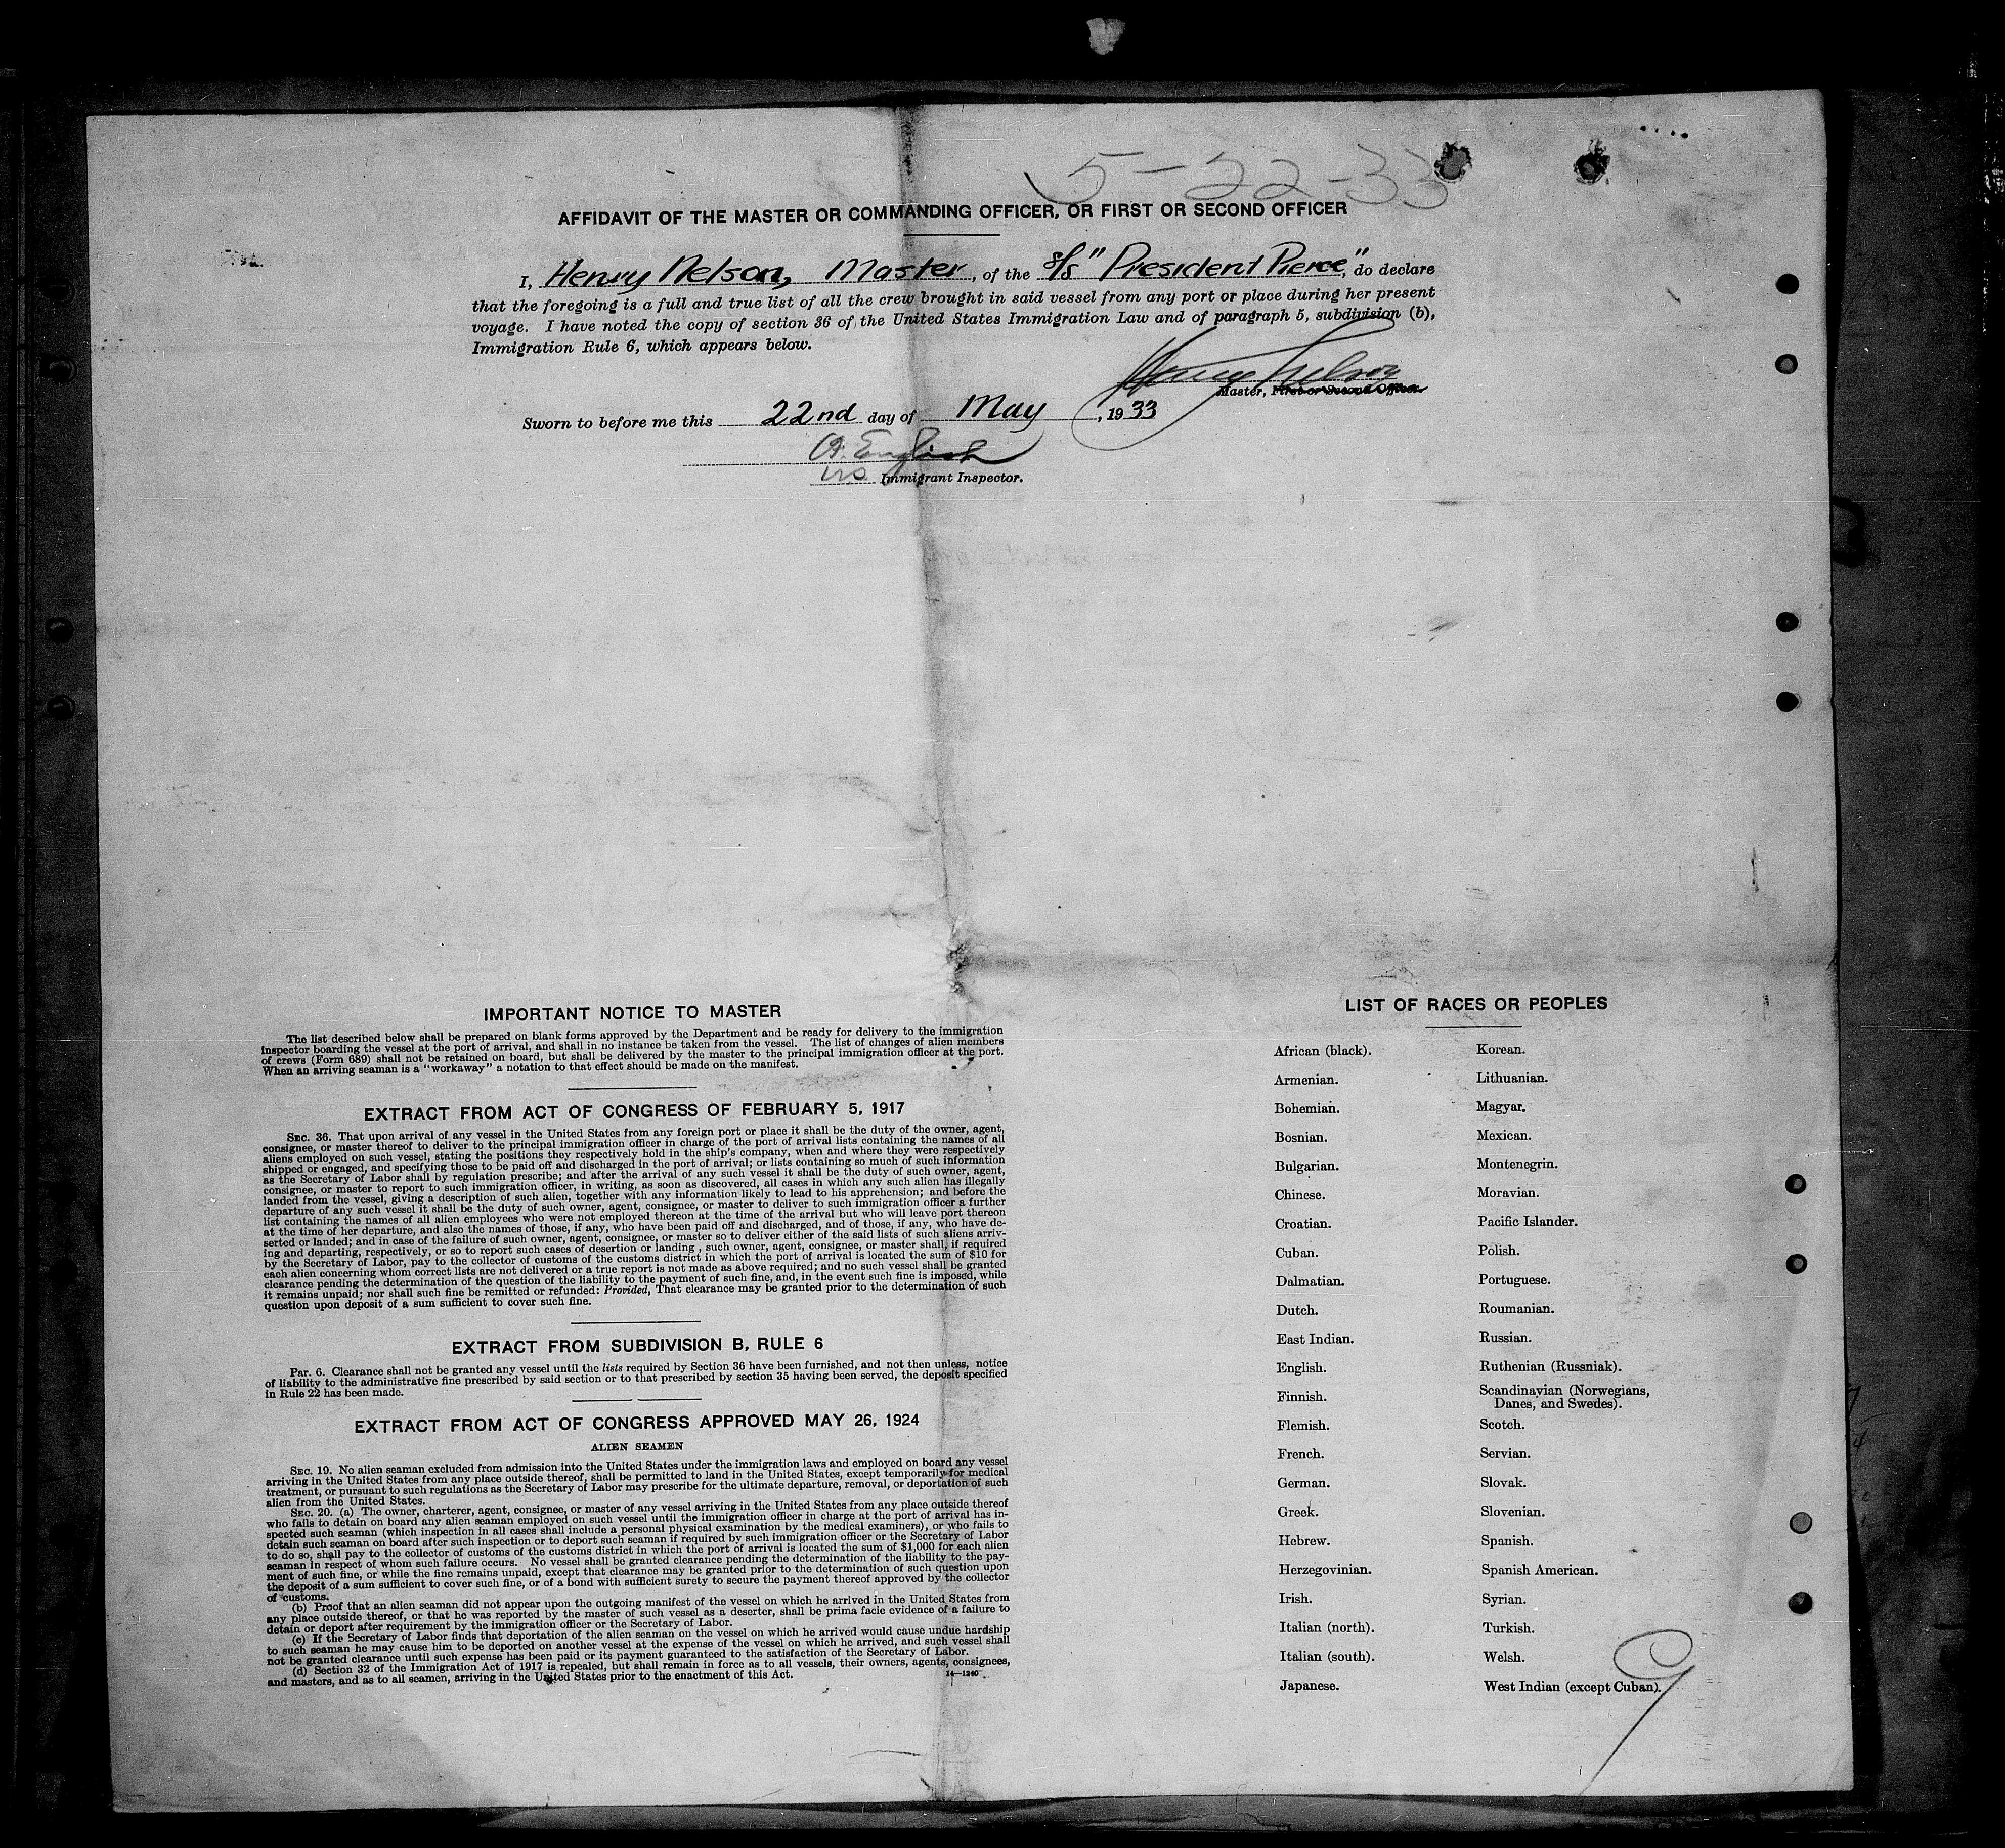 5-22-33
AFFIDAVIT OF THE MASTER OR COMMANDING OFFICER, OR FIRST OR SECOND OFFICER
I, Henry Nelson, Master, of the S/S "President Pierce", do declare
that the foregoing is a full and true list of all the crew brought in said vessel from any port or place during her present
voyage. I have noted the copy of section 36 of the United States Immigration Law and of paragraph 5, subdivision (b),
Immigration Rule 6, which appears below.
Henry Nelson
Master, First or Second Officer
Sworn to before me this 22nd day of May, 1933
English
U.S. Immigrant Inspector.
IMPORTANT NOTICE TO MASTER
The list described below shall be prepared on blank forms approved by the Department and be ready for delivery to the immigration
inspector boarding the vessel at the port of arrival, and shall in no instance be taken from the vessel. The list of changes of alien members
of crews (Form 689) shall not be retained on board, but shall be delivered by the master to the principal immigration officer at the port.
When an arriving seaman is a "workaway" a notation to that effect should be made on the manifest.
EXTRACT FROM ACT OF CONGRESS OF FEBRUARY 5, 1917
SEC. 36. That upon arrival of any vessel in the United States from any foreign port or place it shall be the duty of the owner, agent,
consignee, or master thereof to deliver to the principal immigration officer in charge of the port of arrival lists containing the names of all
aliens employed on such vessel, stating the positions they respectively hold in the ship's company, when and where they were respectively
shipped or engaged, and specifying those to be paid off and discharged in the port of arrival; or lists containing so much of such information
as the Secretary of Labor shall by regulation prescribe; and after the arrival of any such vessel it shall be the duty of such owner, agent,
consignee, or master to report to such immigration officer, in writing, as soon as discovered, all cases in which any such alien has illegally
landed from the vessel, giving a description of such alien, together with any information likely to lead to his apprehension; and before the
departure of any such vessel it shall be the duty of such owner, agent, consignee, or master to deliver to such immigration officer a further
list containing the names of all alien employees who were not employed thereon at the time of the arrival but who will leave port thereon
at the time of her departure, and also the names of those, if any, who have been paid off and discharged, and of those, if any, who have de-
serted or landed; and in case of the failure of such owner, agent, consignee, or master so to deliver either of the said lists of such aliens arriv-
ing and departing, respectively, or so to report such cases of desertion or landing, such owner, agent, consignee, or master shall, if required
by the Secretary of Labor, pay to the collector of customs of the customs district in which the port of arrival is located the sum of $10 for
each alien concerning whom correct lists are not delivered or a true report is not made as above required; and no such vessel shall be granted
clearance pending the determination of the question of the liability to the payment of such fine, and, in the event such fine is imposed, while
it remains unpaid; nor shall such fine be remitted or refunded: Provided, That clearance may be granted prior to the determination of such
question upon deposit of a sum sufficient to cover such fine.
EXTRACT FROM SUBDIVISION B, RULE 6
Par. 6. Clearance shall not be granted any vessel until the lists required by Section 36 have been furnished, and not then unless, notice
of liability to the administrative fine prescribed by said section or to that prescribed by section 35 having been served, the deposit specified
in Rule 22 has been made.
EXTRACT FROM ACT OF CONGRESS APPROVED MAY 26, 1924
ALIEN SEAMEN
SEC. 19. No alien seaman excluded from admission into the United States under the immigration laws and employed on board any vessel
arriving in the United States from any place outside thereof, shall be permitted to land in the United States, except temporarily for medical
treatment, or pursuant to such regulations as the Secretary of Labor may prescribe for the ultimate departure, removal, or deportation of such
alien from the United States.
SEC. 20. (a) The owner, charterer, agent, consignee, or master of any vessel arriving in the United States from any place outside thereof
who fails to detain on board any alien seaman employed on such vessel until the immigration officer in charge at the port of arrival has in-
spected such seaman (which inspection in all cases shall include a personal physical examination by the medical examiners), or who fails to
detain such seaman on board after such inspection or to deport such seaman if required by such immigration officer or the Secretary of Labor
to do so, shall pay to the collector of customs of the customs district in which the port of arrival is located the sum of $1,000 for each alien
seaman in respect of whom such failure occurs. No vessel shall be granted clearance pending the determination of the liability to the pay-
ment of such fine, or while the fine remains unpaid, except that clearance may be granted prior to the determination of such question upon
the deposit of a sum sufficient to cover such fine, or of a bond with sufficient surety to secure the payment thereof approved by the collector
of customs.
(b) Proof that an alien seaman did not appear upon the outgoing manifest of the vessel on which he arrived in the United States from
any place outside thereof, or that he was reported by the master of such vessel as a deserter, shall be prima facie evidence of a failure to
detain or deport after requirement by the immigration officer or the Secretary of Labor.
(c) If the Secretary of Labor finds that deportation of the alien seaman on the vessel on which he arrived would cause undue hardship
to such seaman he may cause him to be deported on another vessel at the expense of the vessel on which he arrived, and such vessel shall
not be granted clearance until such expense has been paid or its payment guaranteed to the satisfaction of the Secretary of Labor.
(d) Section 32 of the Immigration Act of 1917 is repealed, but shall remain in force as to all vessels, their owners, agents, consignees,
and masters, and as to all seamen, arriving in the United States prior to the enactment of this Act.
14—1240
LIST OF RACES OR PEOPLES
African (black).
Armenian.
Bohemian.
Bosnian.
Bulgarian.
Chinese.
Croatian.
Cuban.
Dalmatian.
Dutch.
East Indian.
English.
Finnish.
Flemish.
French.
German.
Greek.
Hebrew.
Herzegovinian.
Irish.
Italian (north).
Italian (south).
Japanese.
Korean.
Lithuanian.
Magyar.
Mexican.
Montenegrin.
Moravian.
Pacific Islander.
Polish.
Portuguese.
Roumanian.
Russian.
Ruthenian (Russniak).
Scandinavian (Norwegians,
Danes, and Swedes).
Scotch.
Servian.
Slovak.
Slovenian.
Spanish.
Spanish American.
Syrian.
Turkish.
Welsh.
West Indian (except Cuban).
9